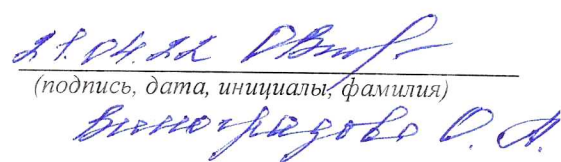 21.04.22
(подпись, дата, инициалы, фамилия)
Виноградова О. А.